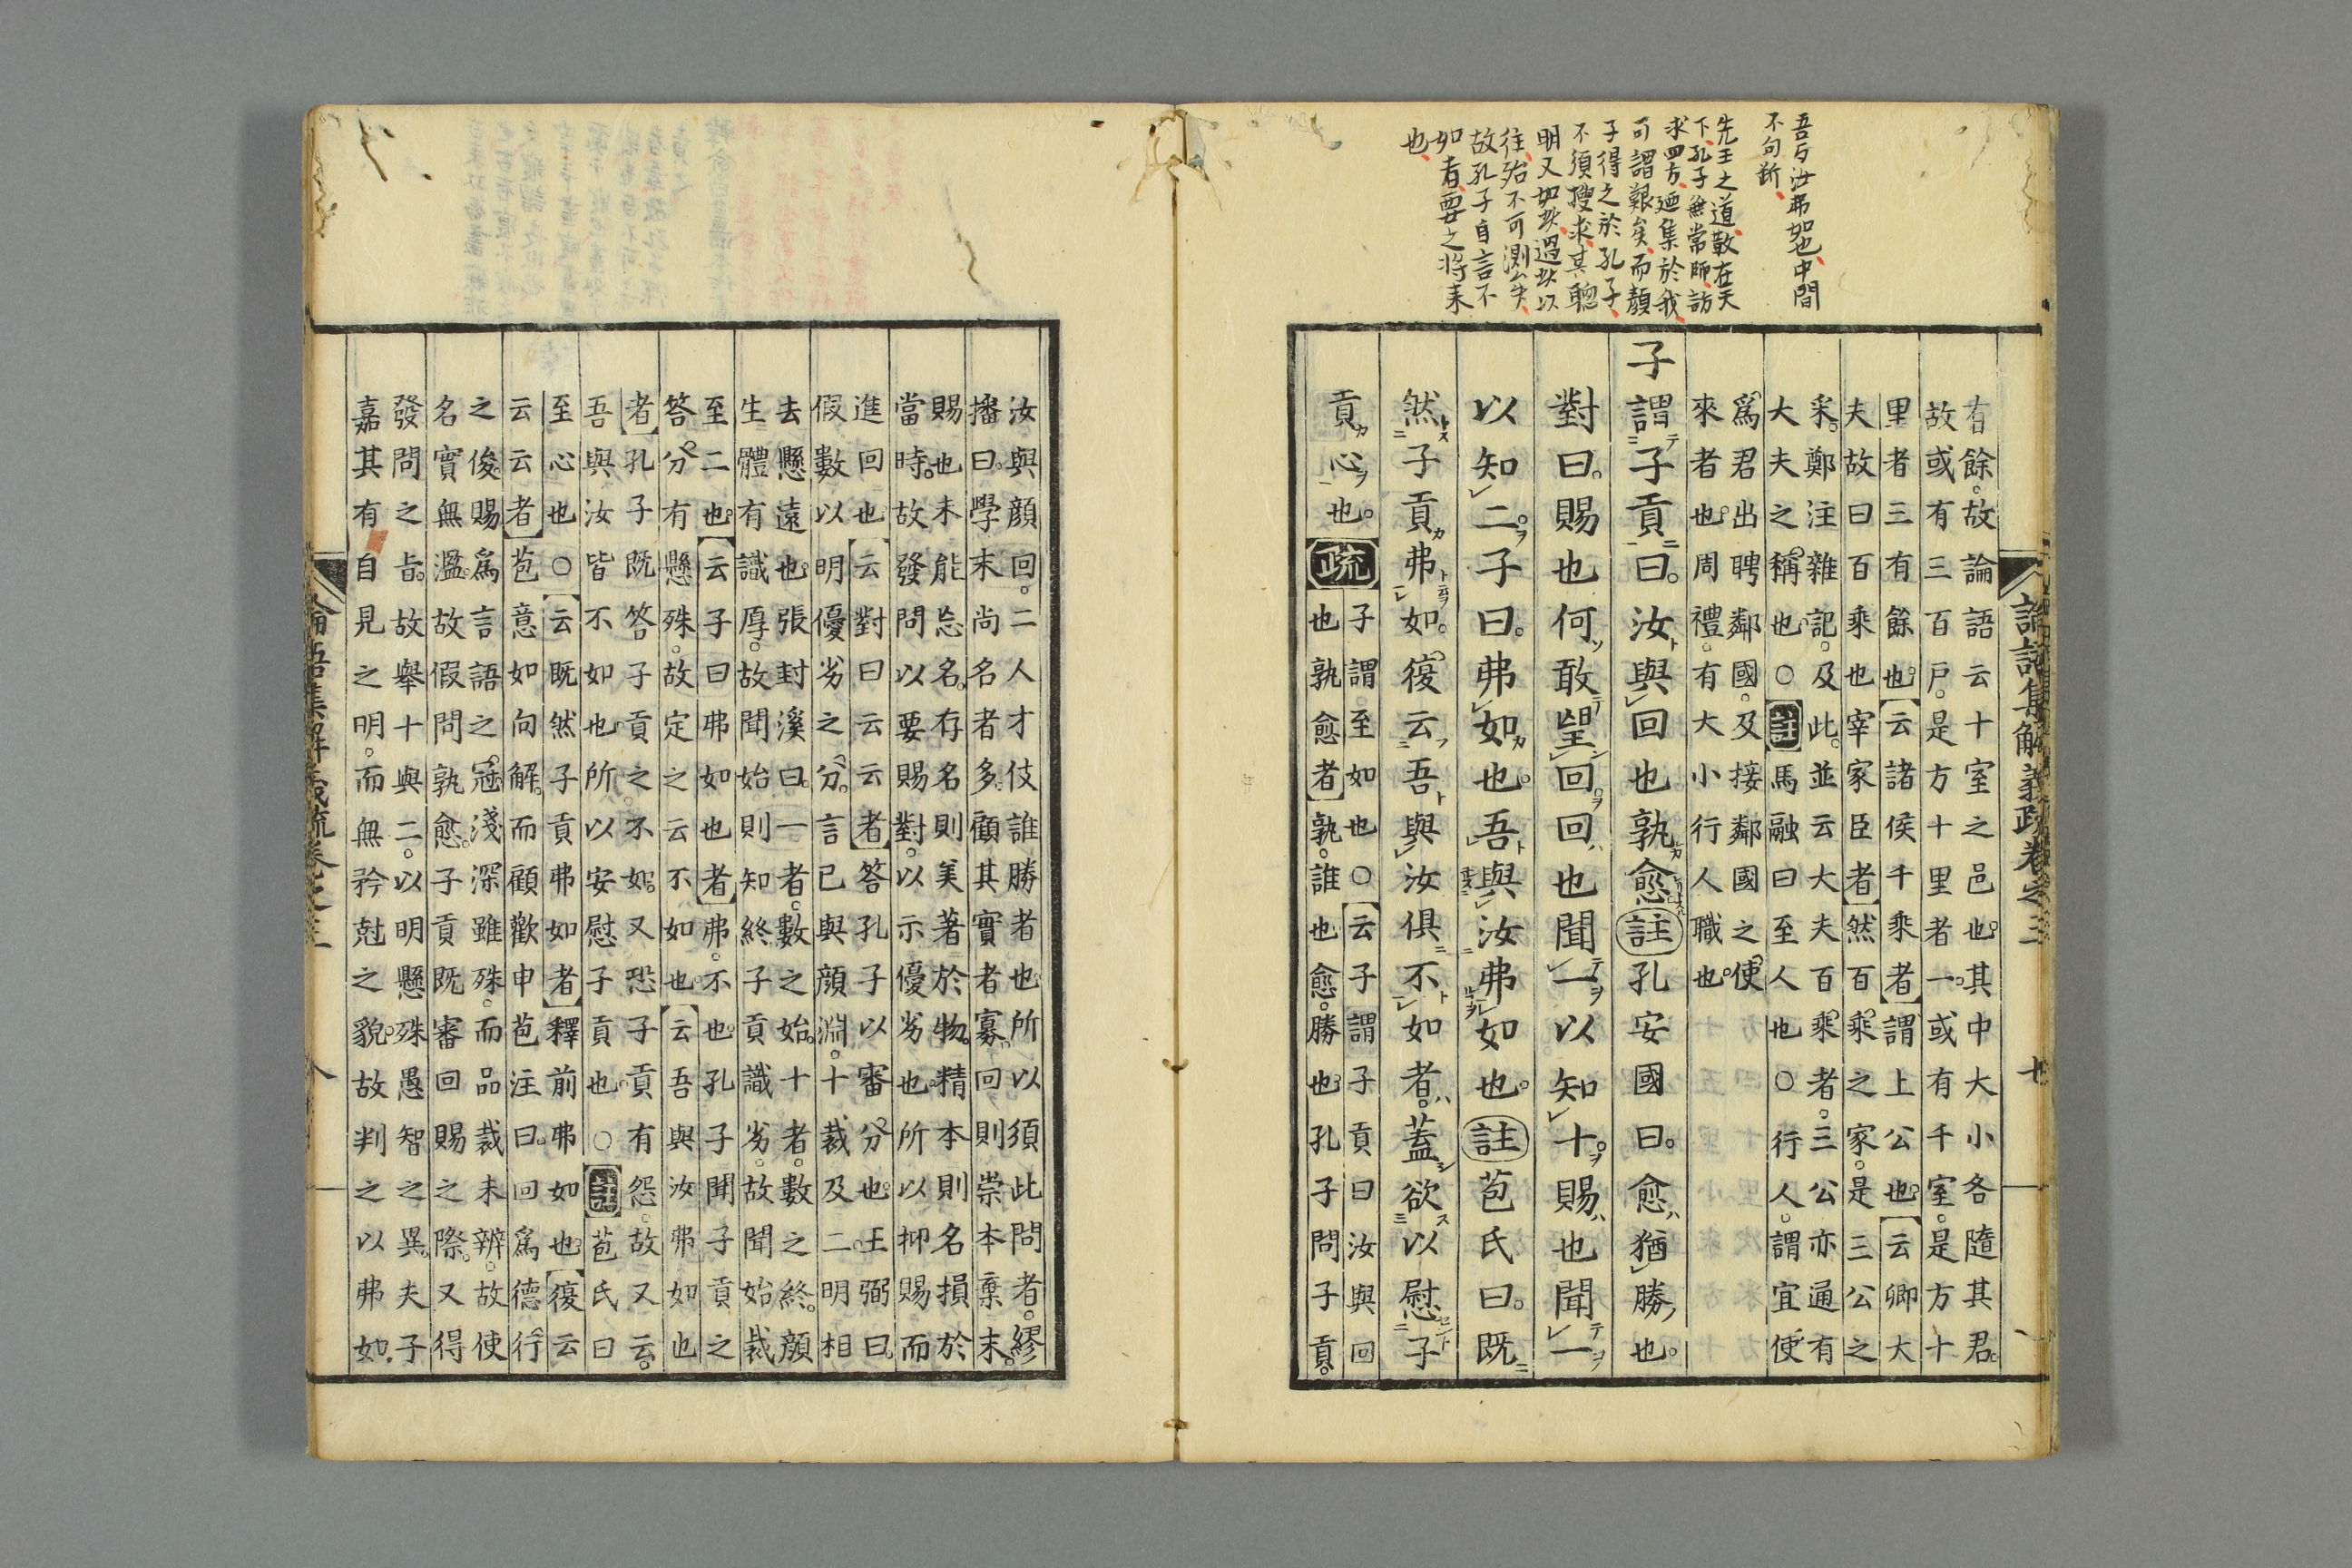 吾与汝弗如也中間
不句断
先王之道散在天
下孔子無常師訪
求四方廼集於我
可謂艱矣而顏
子得之於孔子
不須搜求其聰
明又如此過此以
往殆不可測矣
故孔子自言不
如者要之將來
也
有餘故論語云十室之邑也其中大小各隨其君
故或有三百戶是方十里者一或有千室是方十
里者三有餘也云諸侯千乘者謂上公也云卿大
夫故曰百乘也宰家臣者然百乘之家是三公之
采鄭注雜記及此並云大夫百乘者三公亦通有
大夫之稱也○註馬融曰至人也○行人謂宜使
爲君出聘鄰國及接鄰國之使
來者也周禮有大小行人職也
子謂子貢曰汝與回也孰愈註孔安國曰愈猶勝也
對曰賜也何敢望回回也聞一以知十賜也聞一
以知二子曰弗如也吾與汝弗如也註苞氏曰既
然子貢弗如復云吾與汝俱不如者蓋欲以慰子
貢心也疏
子謂至如也○云子謂子貢曰汝與回
也孰愈者孰誰也愈勝也孔子問子貢
論語集解義疏卷之三
汝與顏回二人才伎誰勝者也所以須此問者繆
播曰學末尚名者多顧其實者寡回則崇本棄末
賜也未能忘名存名則美著於物精本則名損於
當時故發問以要賜對以示優劣也所以抑賜而
進回也云對曰云云者答孔子以審分也王弼曰
假數以明優劣之分言已與顏淵十裁及二明相
去懸遠也張封溪曰一者數之始十者數之終顏
生體有識厚故聞始則知終子貢識劣故聞始裁
至二也云子曰弗如也者弗不也孔子聞子貢之
答分有懸殊故定之云不如也云吾與汝弗如也
者孔子既答子貢之不如又恐子貢有怨故又云
吾與汝皆不如也所以安慰子貢也○註苞氏曰
至心也○云既然子貢弗如者釋前弗如也復云
云云者苞意如向解而顧歡申苞注曰回爲德行
之俊賜爲言語之冠淺深雖殊而品裁未辨故使
名實無濫故假問孰愈子貢既審回賜之際又得
發問之旨故舉十與二以明懸殊愚智之異夫子
嘉其有自見之明而無矜尅之貌故判之以弗如
論語集解義疏卷之三